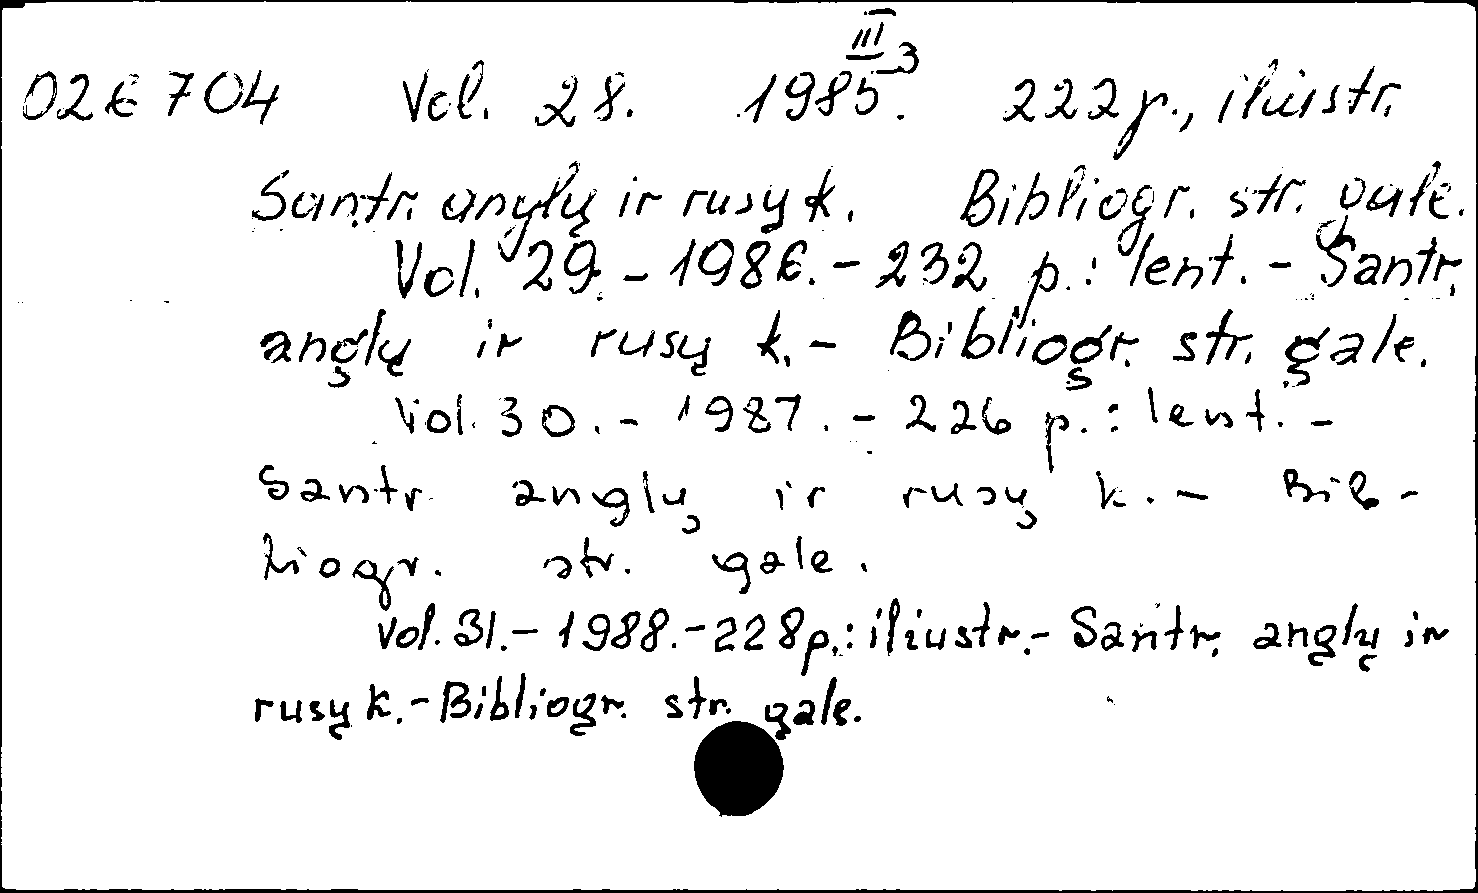 III 3
026704 Vol. 28. 1985. 222 p., iliustr.
Santr. anglų ir rusų k. Bibliogr. str. gale.
Vol. 29. - 1986. - 232 p.: lent. - Santr.
anglų ir rusų k. - Bibliogr. str. gale.
Vol. 30. - 1987. - 226 p.: lent. -
Santr. anglų ir rusų k. - Bib-
liogr. str. gale.
Vol. 31. - 1988. - 228 p.: iliustr. - Santr. anglų ir
rusų k. - Bibliogr. str. gale.